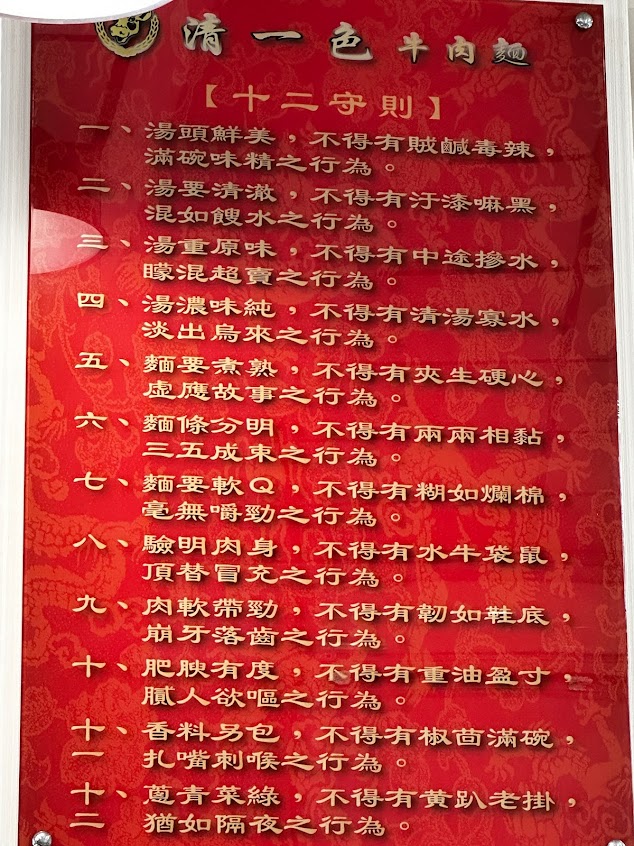 清一色牛肉麵
【十二守則】
一、湯頭鮮美，不得有賊鹹毒辣，
滿碗味精之行為。
二、湯要清澈，不得有汙漆嘛黑，
混如餿水之行為。
三、湯重原味，不得有中途摻水，
矇混超賣之行為。
四、湯濃味純，不得有清湯寡水，
淡出鳥來之行為。
五、麵要煮熟，不得有夾生硬心，
虛應故事之行為。
六、麵條分明，不得有兩兩相黏，
三五成束之行為。
七、麵要軟Q，不得有糊如爛棉，
毫無嚼勁之行為。
八、驗明肉身，不得有水牛袋鼠，
頂替冒充之行為。
九、肉軟帶勁，不得有韌如鞋底，
崩牙落齒之行為。
十、肥腴有度，不得有重油盈寸，
膩人欲嘔之行為。
十一、香料另包，不得有椒茴滿碗，
扎嘴刺喉之行為。
十二、蔥青菜綠，不得有黃趴老掛，
猶如隔夜之行為。